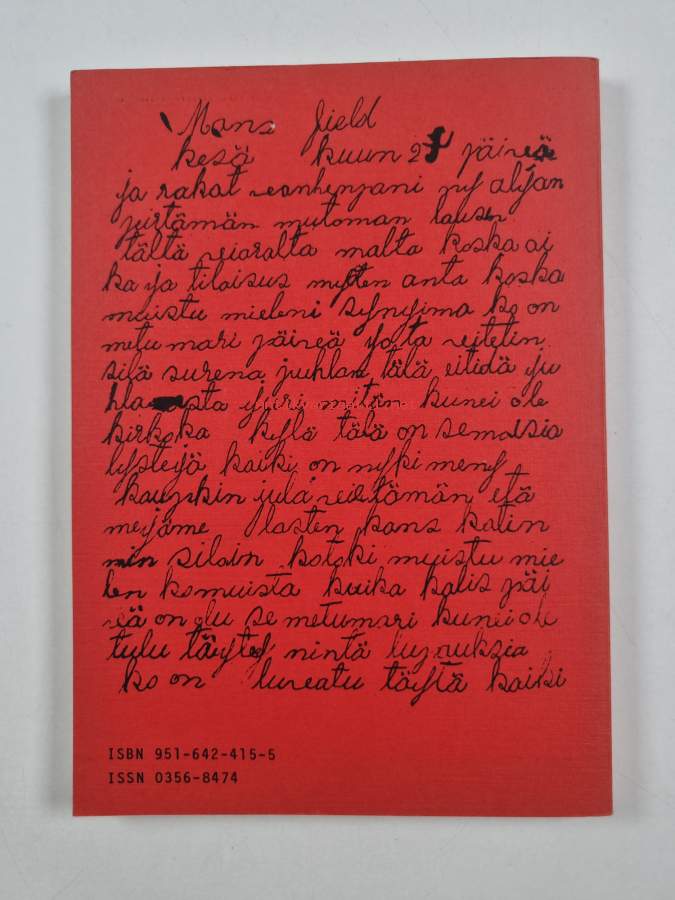 Mans field
kesä kuun 27 päireä
ja rakat vanhenpani ny alyan
piirtämän mutoman lausen
tältä vieralta malta koska ai
ka ja tilaisus myöten anta koska
muistu mieleni synyima ko on
metu mari päireä jota vietetin
silä surena juhlan tälä eitidä ju
hla sta yhri mitän kunei ole
kirkoka kylä tälä on semoisia
lysteijä kaiki on nyki meny
kaupukin julá viettämän etä
mejäme lasten kans katin
min siloin kotoki muistu mie
len komuista kuika kalis päi
vä on olu se metumari kunei ole
tulu täytety nintä lupauksia
ko on luvatu täytä kaiki
ISBN 951-642-415-5
ISSN 0356-8474